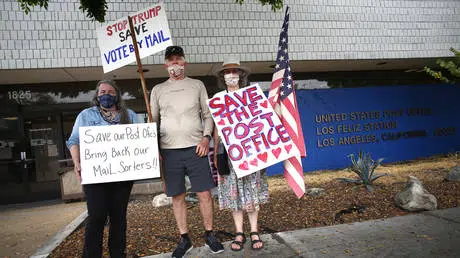 STOP TRUMP
SAVE
VOTE BY MAIL
1825
Save our Post Offices
Bring Back our
Mail Sorters!!
SAVE
THE
POST
OFFICE
UNITED STATES POST OFFICE
LOS FELIZ STATION
LOS ANGELES, CALIFORNIA